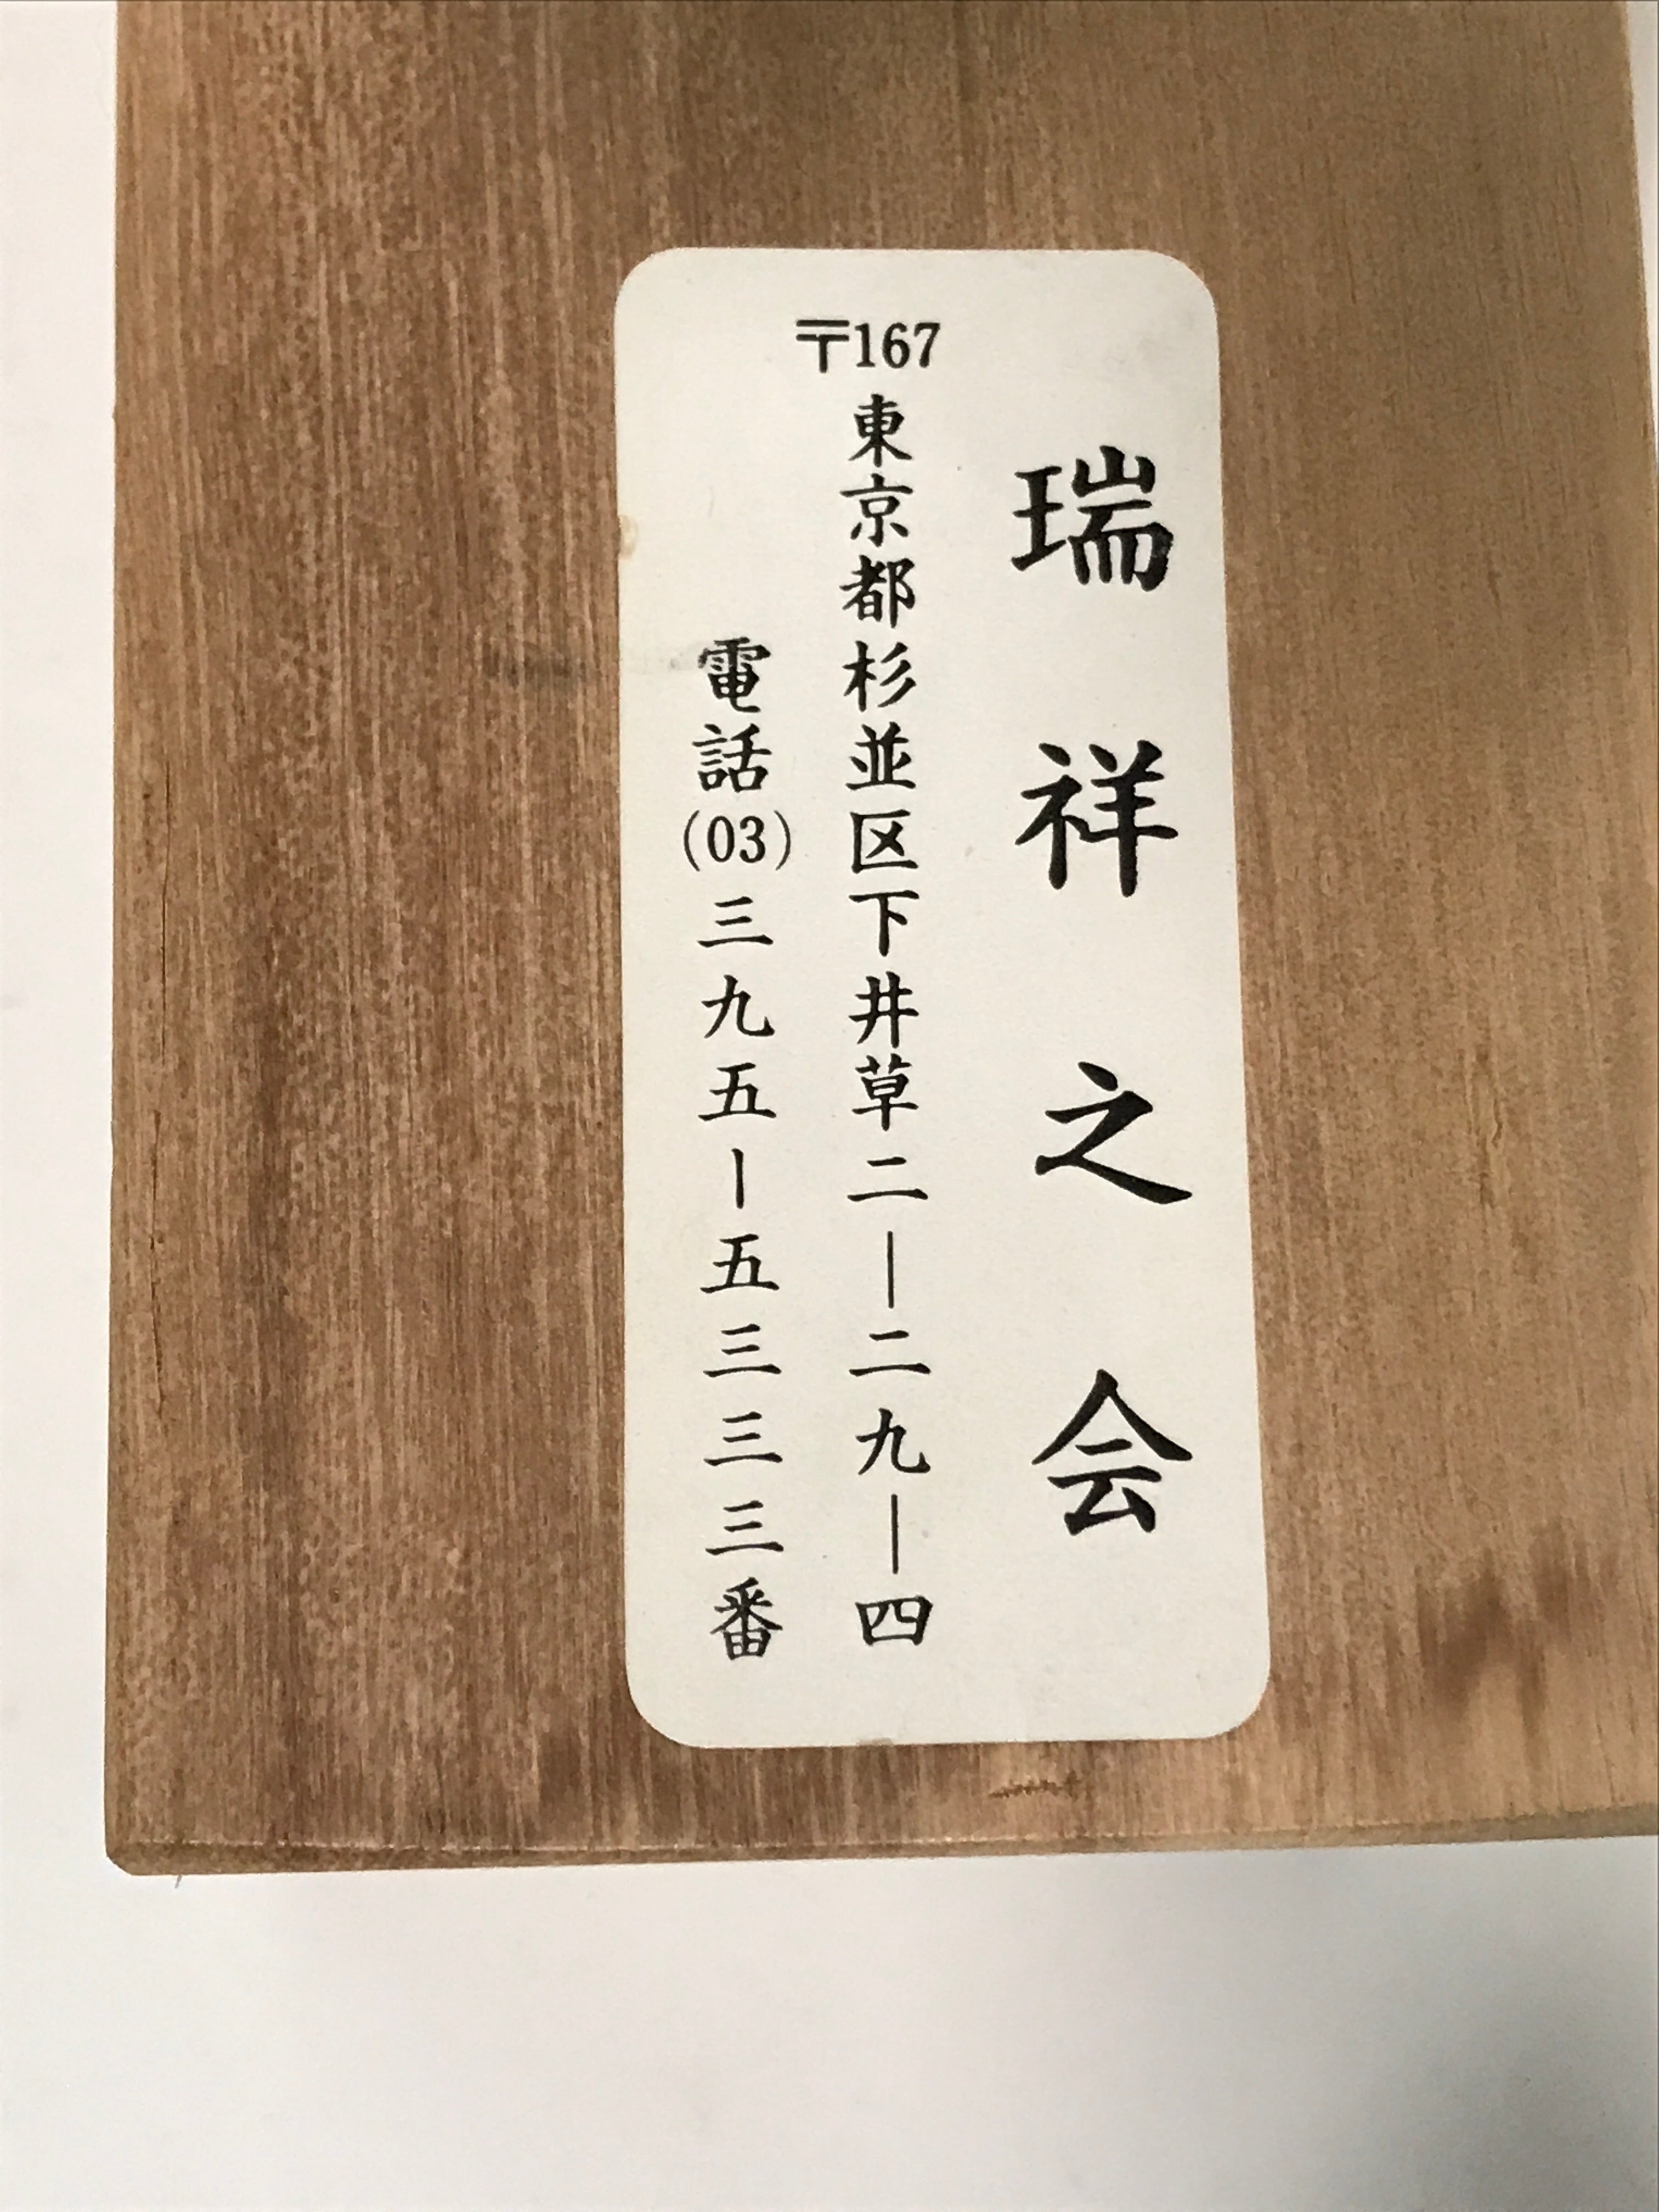 瑞祥之会
〒167東京都杉並区下井草二―二九―四
電話(03)三九五―五三三三番